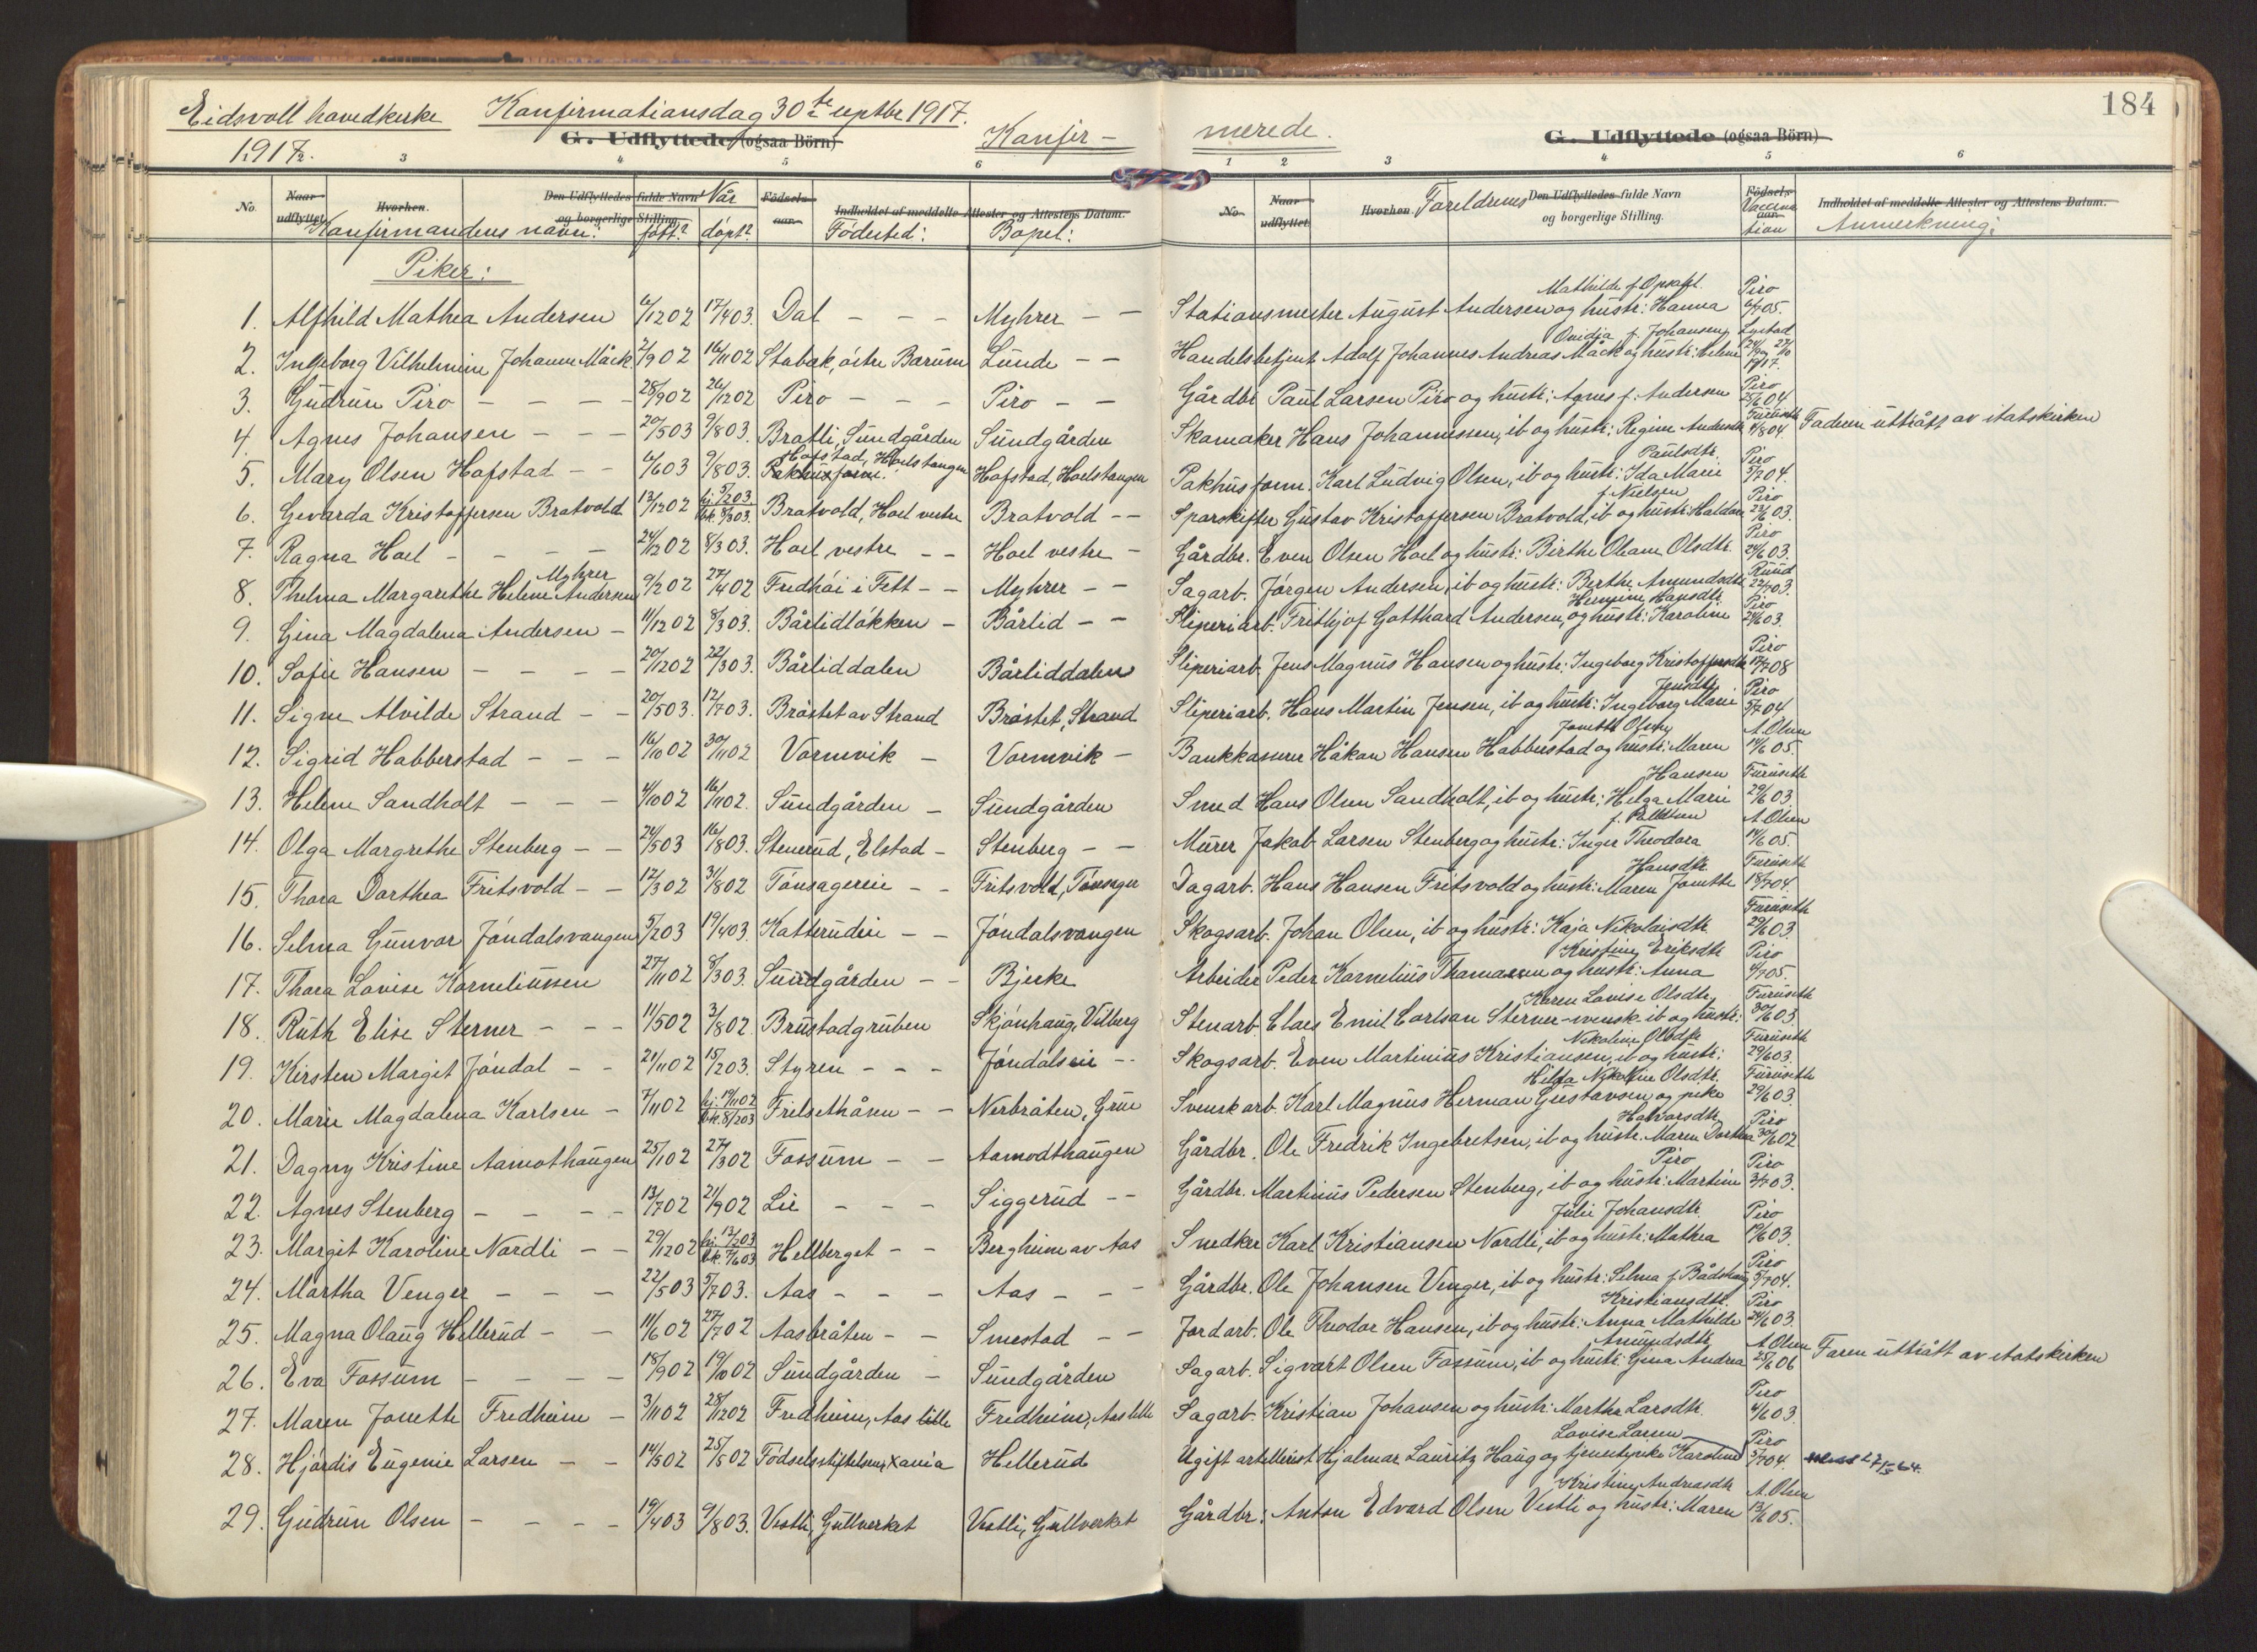 184
Eidsvoll hovedkirke Konfirmationsdag 30te septbr 1917.
1917.
G. Udflyttede (ogsaa Börn)
Konfir- merede.
G. Udflyttede (ogsaa Börn)
3 4 5 6 1 2 3 4 5 6
No. Naar udflyttet. Hvorhen. Den Udflyttedes fulde Navn og borgerlige Stilling. Födsels-aar. Indholdet af meddelte Attester og Attestens Datum.
Konfirmandens navn: Når født? døpt? Fødested: Bopel:
No. Naar udflyttet. Hvorhen. Den Udflyttedes fulde Navn og borgerlige Stilling. Födsels-aar. Indholdet af meddelte Attester og Attestens Datum.
Foreldrenes Vaccination Anmerkning:
Piker:
1. Alfhild Mathea Andersen 6/12 02 17/4 03. Dal - - - Myhrer - - Stationsmester August Andersen og hustr: Hanna Mathilde f. Opsahl Piro 6/7 05.
2. Ingeborg Vilhelmine Johanne Måck 2/9 02 16/11 02 Stabæk, östre Bærum Lunde - - Handelsbetjent Adolf Johannes Andreas Måck og hustr: Helene Ovidia f. Johansen Lystad 1917.
3. Gudrun Piro - - - - 28/9 02 26/12 02 Piro - - - Piro - - Gårdbr Paul Larsen Piro og hustr: Agnes f. Andersen Piro 25/6 04
4. Agnes Johansen - - - 20/5 03 9/8 03. Bratli, Sundgården Sundgården Skomaker Hans Johannessen, ib og hustr: Regine Andersdtr Furuseth 4/8 04 Faderen uttrått av statskirken
5. Mary Olsen Hofstad - - 6/6 03 9/8 03. Hofstad, Hoelstangen Hofstad, Hoelstangen Pakhusform. Karl Ludvig Olsen, ib og hustr: Ida Marie Paulsdtr. Piro 5/7 04.
6. Gevarda Kristoffersen Bratvold 13/12 02 hj. 5/2 03. bk. 8/3 03. Bratvold, Hoel vestre Bratvold - - Sporskifter Gustav Kristoffersen Bratvold, ib og hustr: Haldora f. Nielsen Piro 23/6 03.
7. Ragna Hoel - - - - 24/12 02 8/3 03. Hoel vestre - - Hoel vestre - Gårdbr. Even Olsen Hoel og hustr: Birthe Oleane Olsdtr. Piro 24/6 03.
8. Thelma Margarethe Helene Andersen Myhrer 9/2 02 27/4 02 Fredhöi i Fett - - Myhrer - - Sagarb. Jørgen Andersen, ib og hustr: Berthe Amundsdtr Ruud 22/7 03.
9. Gina Magdalena Andersen - 11/12 02 8/3 03. Bårlidløkken - Bårlid - - Sliperiarb. Frithjof Gotthard Andersen og hustr: Karoline Hermine Hansdtr Piro 24/6 03.
10. Sofie Hansen - - - - 20/12 02 22/3 03. Bårliddalen Bårliddalen Sliperiarb. Jens Magnus Hansen og hustr: Ingeborg Kristoffersdtr Piro 17/7 08
11. Signe Alvilde Strand - - 20/5 03. 12/7 03. Bråstet av Strand Bråstet, Strand Sliperiarb. Hans Martin Jensen, ib og hustr: Ingeborg Marie Jensdtr. Piro 5/7 04
12. Sigrid Habberstad - - - 16/10 02 30/11 02 Vormvik - Vormvik - Bankkasserer Håkon Hansen Habberstad og hustr: Maren Jonette A. Olsen 14/6 05.
13. Helene Sandholt - - - 4/10 02 16/11 02. Sundgården - Sundgården Smed Hans Olsen Sandholt, ib og hustr: Helga Marie Hansen Furuseth 29/6 03.
14. Olga Margrethe Stenberg - - 24/5 03 16/8 03. Stenerud, Elstad - Stenberg - - Murer Jakob Larsen Stenberg og hustr: Inger Theodora A. Olsen 14/6 05.
15. Thora Dorthea Fritsvold - - 12/3 02 31/8 02 Tønsagereie - - Fritsvold, Tønsager Dagarb. Hans Hansen Fritsvold og hustr: Maren Jonette Hansdtr. Furuseth 18/7 04.
16. Selma Gunvor Jøndalsvangen 5/2 03 19/4 03. Katterudeie - - Jøndalsvangen Skogsarb. Johan Olsen, ib og hustr: Kaja Nikolaisdtr Furuseth 29/6 03
17. Thora Lovise Korneliussen 27/11 02 8/3 03. Sundgården - - Bjerke Arbeider Peder Kornelius Thomassen og hustr: Anna Kristine Eriksdtr Piro 4/7 05.
18. Ruth Elise Sterner - - - 11/5 02 3/8 02. Brustadgruben Skjønhaug, Vilberg Stenarb. Claes Emil Carlson Sterner - svensk - ib og hustr: Karen Lovise Olsdtr. Furuseth 30/6 03.
19. Kirsten Margit Jøndal - - 21/11 02 15/2 03. Styren - - - Jøndalseie - - Skogsarb. Even Martinius Kristiansen, ib og hustr: Nikoline Olsdtr Furuseth 29/6 03.
20. Marie Magdalena Karlsen - 7/11 02 hj. 19/11 02 bk. 8/2 03 Frilsethåsen - - Nerbråten, Grue Svensk arb. Karl Magnus Herman Gustavsen og pike Hilda Nikoline Olsdtr. Furuseth 29/6 03.
21. Dagny Kristine Aamothaugen 25/1 02 27/3 02 Fossum - - Aamodthaugen Gårdbr. Ole Fredrik Ingebretsen, ib og hustr. Maren Dorthea Halvorsdtr. Piro 30/6 02
22. Agnes Stenberg - - - - 13/7 02 21/9 02 Lie - - - Siggerud - - Gårdbr. Martinus Pedersen Stenberg, ib og hustr: Martine Piro Piro 3/7 03.
23. Margit Karoline Nordli - - 29/12 02 hj. 13/2 03 bk. 7/6 03 Hellberget - - Bergheim av Aas Snedker Karl Kristiansen Nordli, ib og hustr: Mathea Julie Johansdtr. Piro 19/6 03.
24. Martha Venger - - - 22/5 03 5/7 03. Aas - - - Aas - - - Gårdbr. Ole Johansen Venger, ib og hustr: Selma f. Bådshaug Piro 5/7 04.
25. Magna Olaug Hellerud - - 11/6 02 27/7 02 Aasbråten - - Smestad - - Jordarb. Ole Theodor Hansen, ib og hustr: Anna Mathilde Kristiansdtr. Piro 24/6 03.
26. Eva Fossum - - - - 18/9 02 19/10 02 Sundgården - Sundgården Sagarb. Sigvart Olsen Fossum, ib og hustr: Gina Andrea Amundsdtr A. Olsen 25/6 06 Faren uttrått av statskirken
27. Maren Jonette Fredheim - 3/11 02 28/12 02 Fredheim, Aas lille Fredheim, Aas lille Sagarb. Kristian Johansen og hustr: Marthe Larsdtr. Piro 4/6 03.
28. Hjørdis Eugenie Larsen - - 14/5 02 25/5 02 Fødselsstiftelsen, Xania Hellerud Ugift artellerist Hjalmar Lauritz Haug og tjenestepike Karoline Lovise Larsen Piro 5/7 04.
29. Gudrun Olsen - - - - 19/4 03 9/8 03. Vestli, Gullverket Vestli, Gullverket Gårdbr: Anton Edvard Olsen Vestli og hustr: Maren Kristine Andreasdtr A. Olsen 13/6 05.